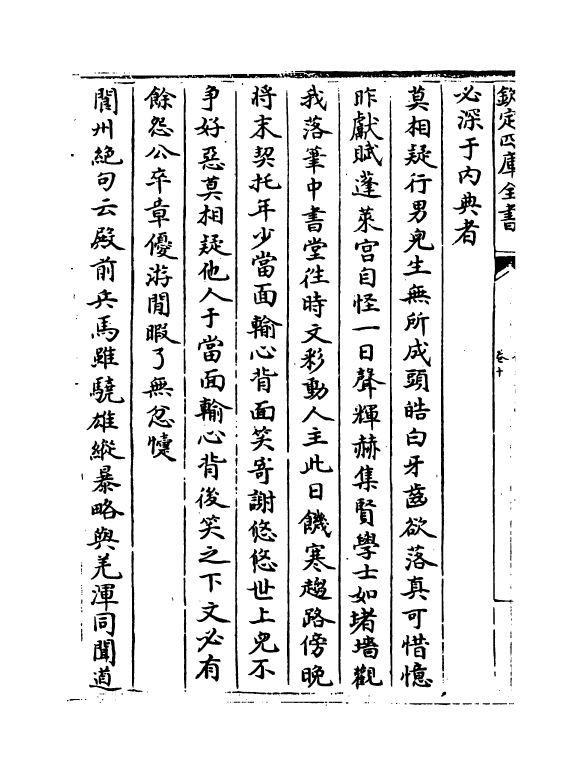 欽定四庫全書
卷十
必深于內典者
莫相疑行男兒生無所成頭皓白牙齒欲落真可惜憶
昨獻賦蓬萊宮自怪一日聲輝赫集賢學士如堵墻觀
我落筆中書堂徃時文彩動人主此日饑寒趨路傍晚
將末契托年少當面輸心背面笑寄謝悠悠世上兒不
争好惡莫相疑他人于當面輸心背後笑之下文必有
餘怨公卒章優游閒暇了無忿懥
閬州絕句云殿前兵馬雖驍雄縱暴略與羌渾同聞道